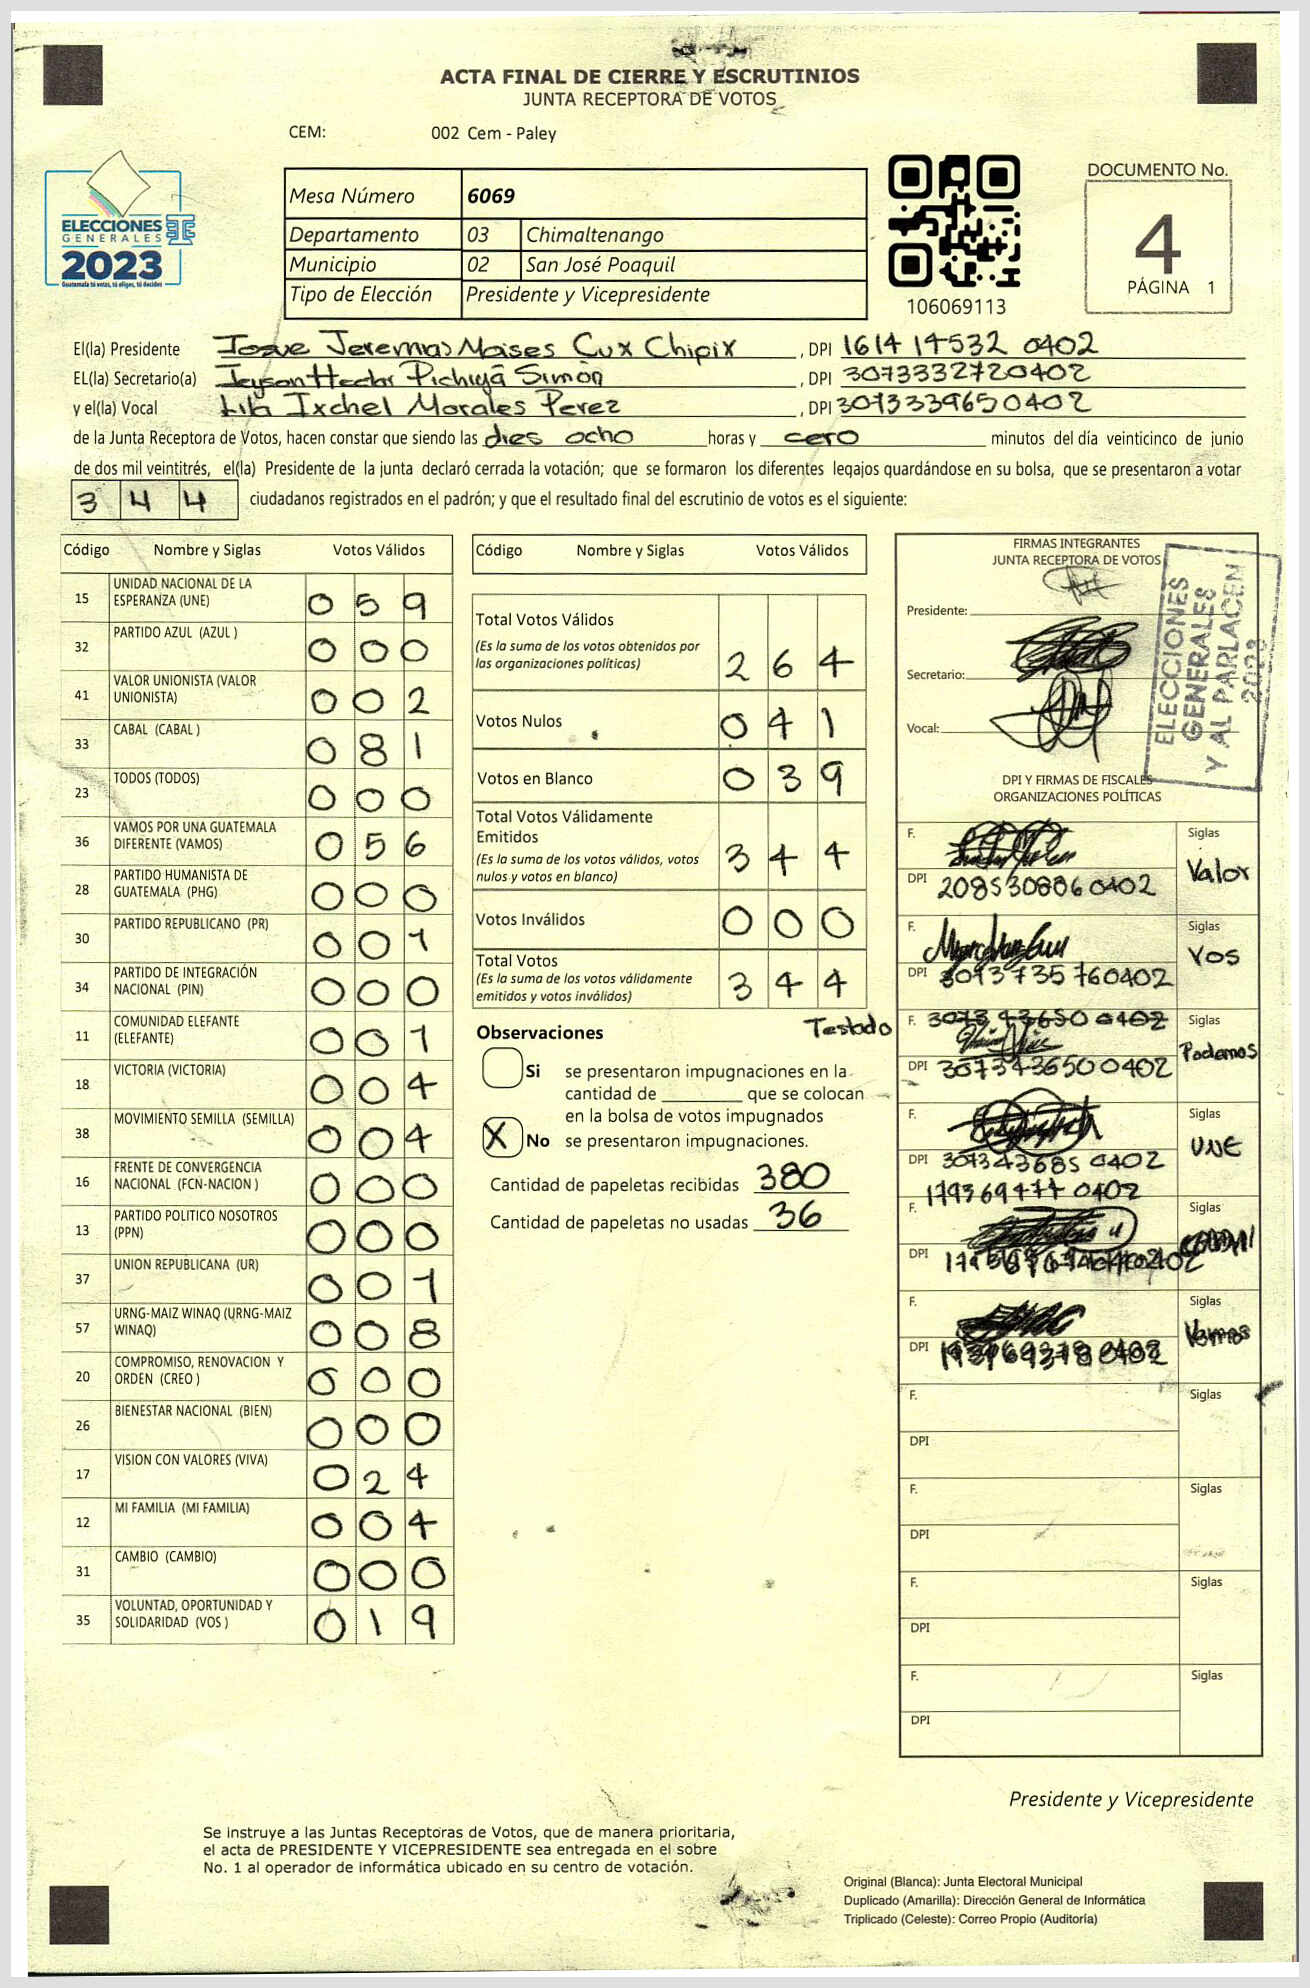 ACTA FINAL DE CIERRE Y ESCRUTINIOS
JUNTA RECEPTORA DE VOTOS
CEM: 002 Cem - Paley
ELECCIONES
GENERALES
2023
Guatemala tú votas, tú eliges, tú decides
Mesa Número 6069
Departamento 03 Chimaltenango
Municipio 02 San José Poaquil
Tipo de Elección Presidente y Vicepresidente
106069113
DOCUMENTO No.
4
PÁGINA 1
El(la) Presidente Josue Jeremias Moises Cux Chipix , DPI 1614 14532 0402
EL(la) Secretario(a) Jeyson Hector Pichiyá Simón , DPI 3073332720402
y el(la) Vocal Lila Ixchel Morales Perez , DPI 3073339650402
de la Junta Receptora de Votos, hacen constar que siendo las dies ocho horas y cero minutos del día veinticinco de junio
de dos mil veintitrés, el(la) Presidente de la junta declaró cerrada la votación; que se formaron los diferentes legajos quardándose en su bolsa, que se presentaron a votar
3 4 4 ciudadanos registrados en el padrón; y que el resultado final del escrutinio de votos es el siguiente:
Código Nombre y Siglas Votos Válidos
15 UNIDAD NACIONAL DE LA ESPERANZA (UNE) 0 5 9
32 PARTIDO AZUL (AZUL ) 0 0 0
41 VALOR UNIONISTA (VALOR UNIONISTA) 0 0 2
33 CABAL (CABAL ) 0 8 1
23 TODOS (TODOS) 0 0 0
36 VAMOS POR UNA GUATEMALA DIFERENTE (VAMOS) 0 5 6
28 PARTIDO HUMANISTA DE GUATEMALA (PHG) 0 0 0
30 PARTIDO REPUBLICANO (PR) 0 0 1
34 PARTIDO DE INTEGRACIÓN NACIONAL (PIN) 0 0 0
11 COMUNIDAD ELEFANTE (ELEFANTE) 0 0 1
18 VICTORIA (VICTORIA) 0 0 4
38 MOVIMIENTO SEMILLA (SEMILLA) 0 0 4
16 FRENTE DE CONVERGENCIA NACIONAL (FCN-NACION ) 0 0 0
13 PARTIDO POLITICO NOSOTROS (PPN) 0 0 0
37 UNION REPUBLICANA (UR) 0 0 1
57 URNG-MAIZ WINAQ (URNG-MAIZ WINAQ) 0 0 8
20 COMPROMISO, RENOVACION Y ORDEN (CREO ) 0 0 0
26 BIENESTAR NACIONAL (BIEN) 0 0 0
17 VISION CON VALORES (VIVA) 0 2 4
12 MI FAMILIA (MI FAMILIA) 0 0 4
31 CAMBIO (CAMBIO) 0 0 0
35 VOLUNTAD, OPORTUNIDAD Y SOLIDARIDAD (VOS ) 0 1 9
Código Nombre y Siglas Votos Válidos
Total Votos Válidos
(Es la suma de los votos obtenidos por las organizaciones políticas) 2 6 4
Votos Nulos 0 4 1
Votos en Blanco 0 3 9
Total Votos Válidamente Emitidos
(Es la suma de los votos válidos, votos nulos y votos en blanco) 3 4 4
Votos Inválidos 0 0 0
Total Votos
(Es la suma de los votos válidamente emitidos y votos inválidos) 3 4 4
Observaciones Testado
Si se presentaron impugnaciones en la
cantidad de ________ que se colocan
en la bolsa de votos impugnados
X No se presentaron impugnaciones.
Cantidad de papeletas recibidas 380
Cantidad de papeletas no usadas 36
FIRMAS INTEGRANTES
JUNTA RECEPTORA DE VOTOS
Presidente:
Secretario:
Vocal:
ELECCIONES
GENERALES
Y AL PARLACEN
2023
DPI Y FIRMAS DE FISCALES
ORGANIZACIONES POLÍTICAS
F. Siglas
DPI 2085308860402 Valor
F. Siglas
DPI 3093735760402 VOS
F. 3073 43650 0402 Siglas
DPI 3073436500402 Podemos
F. Siglas
DPI 307343685 0402 UNE
179369477 0402
F. Siglas
DPI
F. Siglas
DPI Vamos
F. Siglas
DPI
F. Siglas
DPI
F. Siglas
DPI
F. Siglas
DPI
Presidente y Vicepresidente
Se instruye a las Juntas Receptoras de Votos, que de manera prioritaria,
el acta de PRESIDENTE Y VICEPRESIDENTE sea entregada en el sobre
No. 1 al operador de informática ubicado en su centro de votación.
Original (Blanca): Junta Electoral Municipal
Duplicado (Amarilla): Dirección General de Informática
Triplicado (Celeste): Correo Propio (Auditoría)